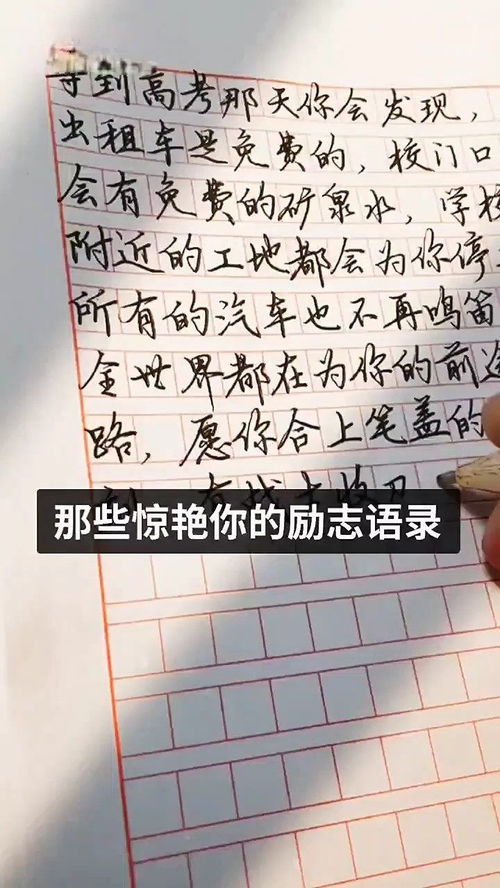 等到高考那天你会发现，
出租车是免费的，校门口
会有免费的矿泉水，学校
附近的工地都会为你停
所有的汽车也不再鸣笛
全世界都在为你的前途
路，愿你合上笔盖的
那些惊艳你的励志语录